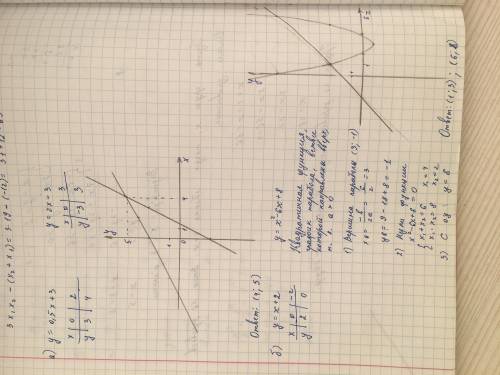 3x₁x₂ - (x₂ + x₁) = 3 · 19 - (-12) =
а) y = 0,5x + 3    y = 2x - 3
x | 0 | 2    x | 0 | 3
y | 3 | 4    y | -3 | 3
y
5
1
0
4
x
Ответ: (4; 5)
б) y = x + 2    y = x² - 6x + 8
x | 0 | -2
y | 2 | 0
Квадратичная функция,
график парабола, ветви
которой направлены вверх,
т. к. a > 0
1) Вершина параболы (3; -1)
x₀ = -b/2a = 6/2 = 3
y₀ = 9 - 18 + 8 = -1
2) Нули функции
x² - 6x + 8 = 0
x₁ + x₂ = 6    x₁ = 4
x₁ · x₂ = 8    x₂ = 2
3) С oy y = 8
y
Ответ: (1; 3) ; (6; 8)